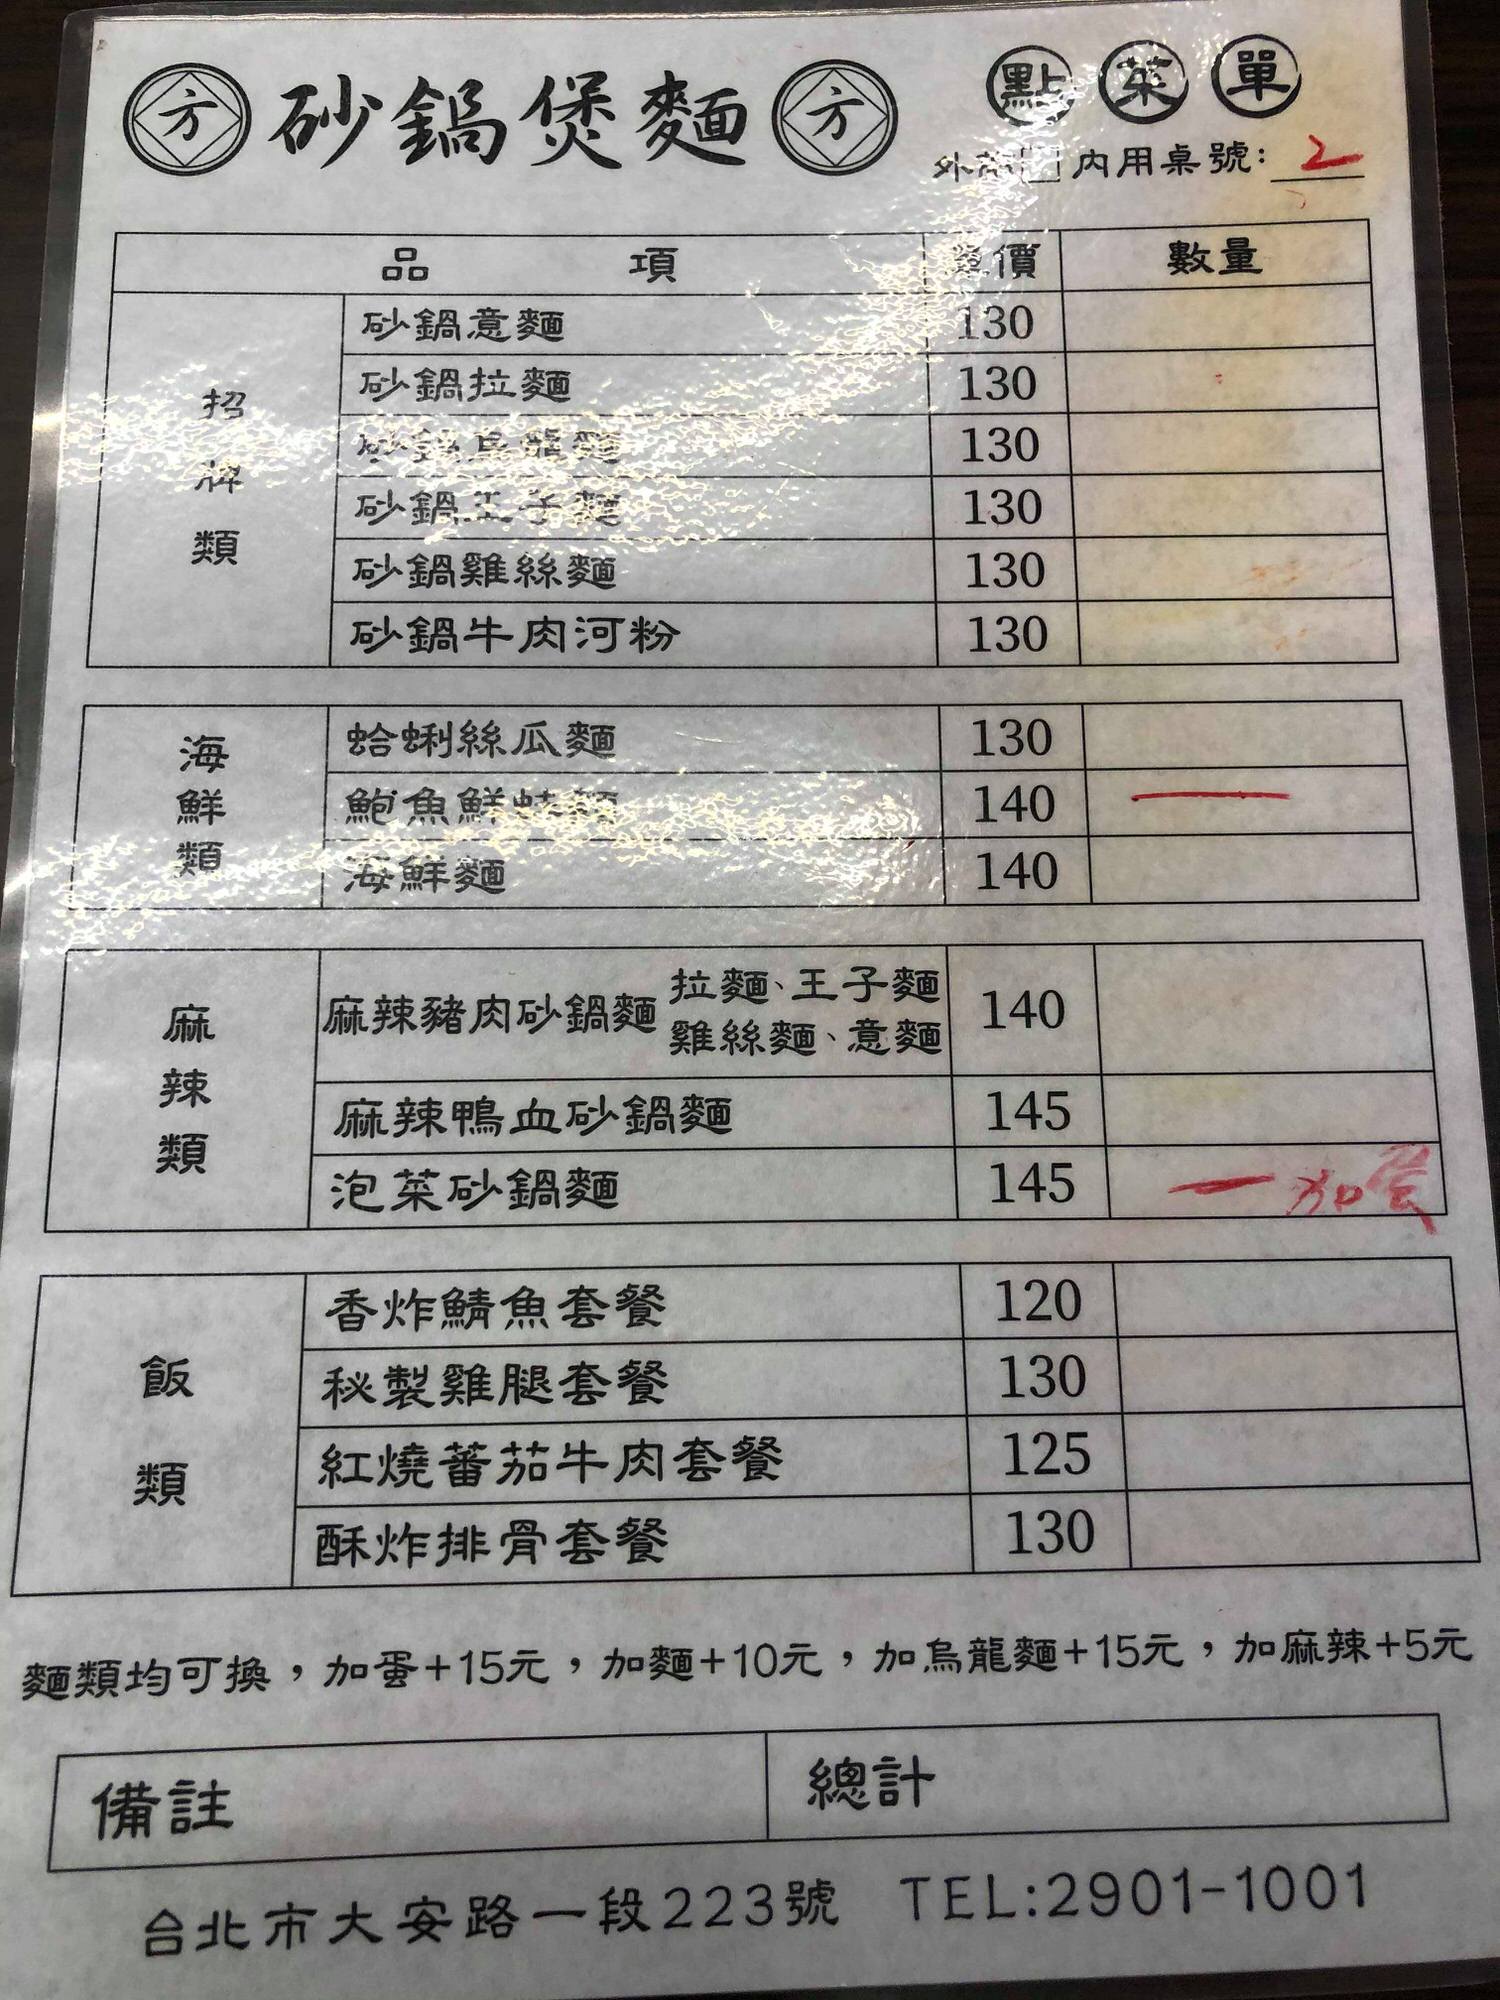 方 砂鍋煲麵 方 點菜單
外 內用桌號: 2
品 項 單價 數量
招牌類
砂鍋意麵 130
砂鍋拉麵 130
砂鍋烏龍麵 130
砂鍋王子麵 130
砂鍋雞絲麵 130
砂鍋牛肉河粉 130
海鮮類
蛤蜊絲瓜麵 130
鮑魚鮮蚵麵 140 一
海鮮麵 140
麻辣類
麻辣豬肉砂鍋麵 拉麵、王子麵 雞絲麵、意麵 140
麻辣鴨血砂鍋麵 145
泡菜砂鍋麵 145 一 加蛋
飯類
香炸鯖魚套餐 120
秘製雞腿套餐 130
紅燒蕃茄牛肉套餐 125
酥炸排骨套餐 130
麵類均可換，加蛋+15元，加麵+10元，加烏龍麵+15元，加麻辣+5元
備註 總計
台北市大安路一段223號 TEL:2901-1001